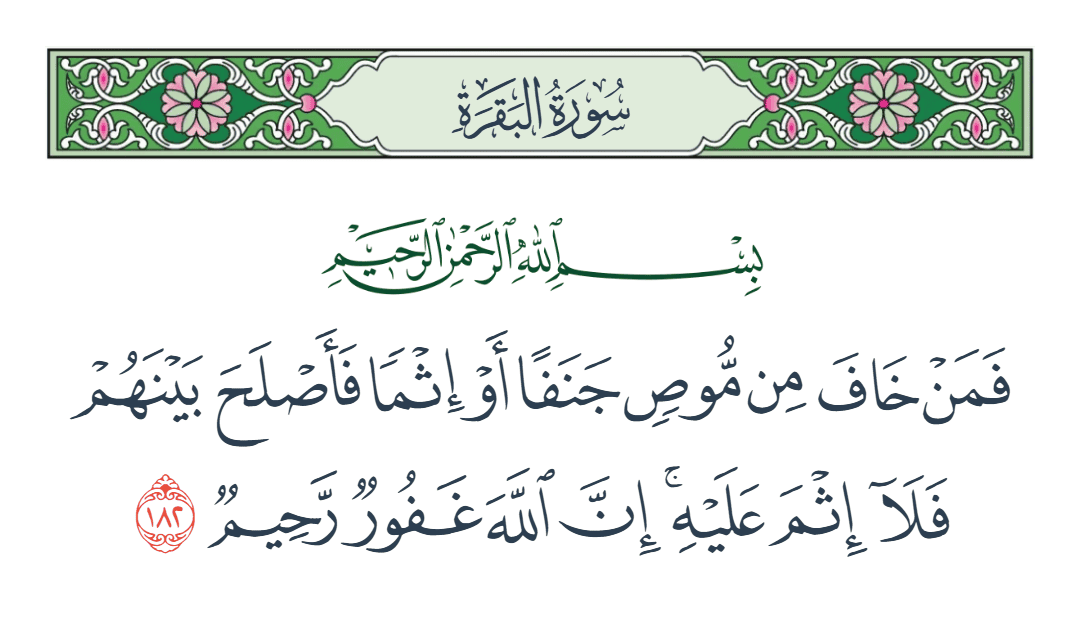 سُورَةُ البَقَرَةِ
بِسْمِ ٱللَّهِ ٱلرَّحْمَٰنِ ٱلرَّحِيمِ
فَمَنْ خَافَ مِن مُّوصٍ جَنَفًا أَوْ إِثْمًا فَأَصْلَحَ بَيْنَهُمْ
فَلَآ إِثْمَ عَلَيْهِ ۚ إِنَّ ٱللَّهَ غَفُورٌ رَّحِيمٌ ١٨٢